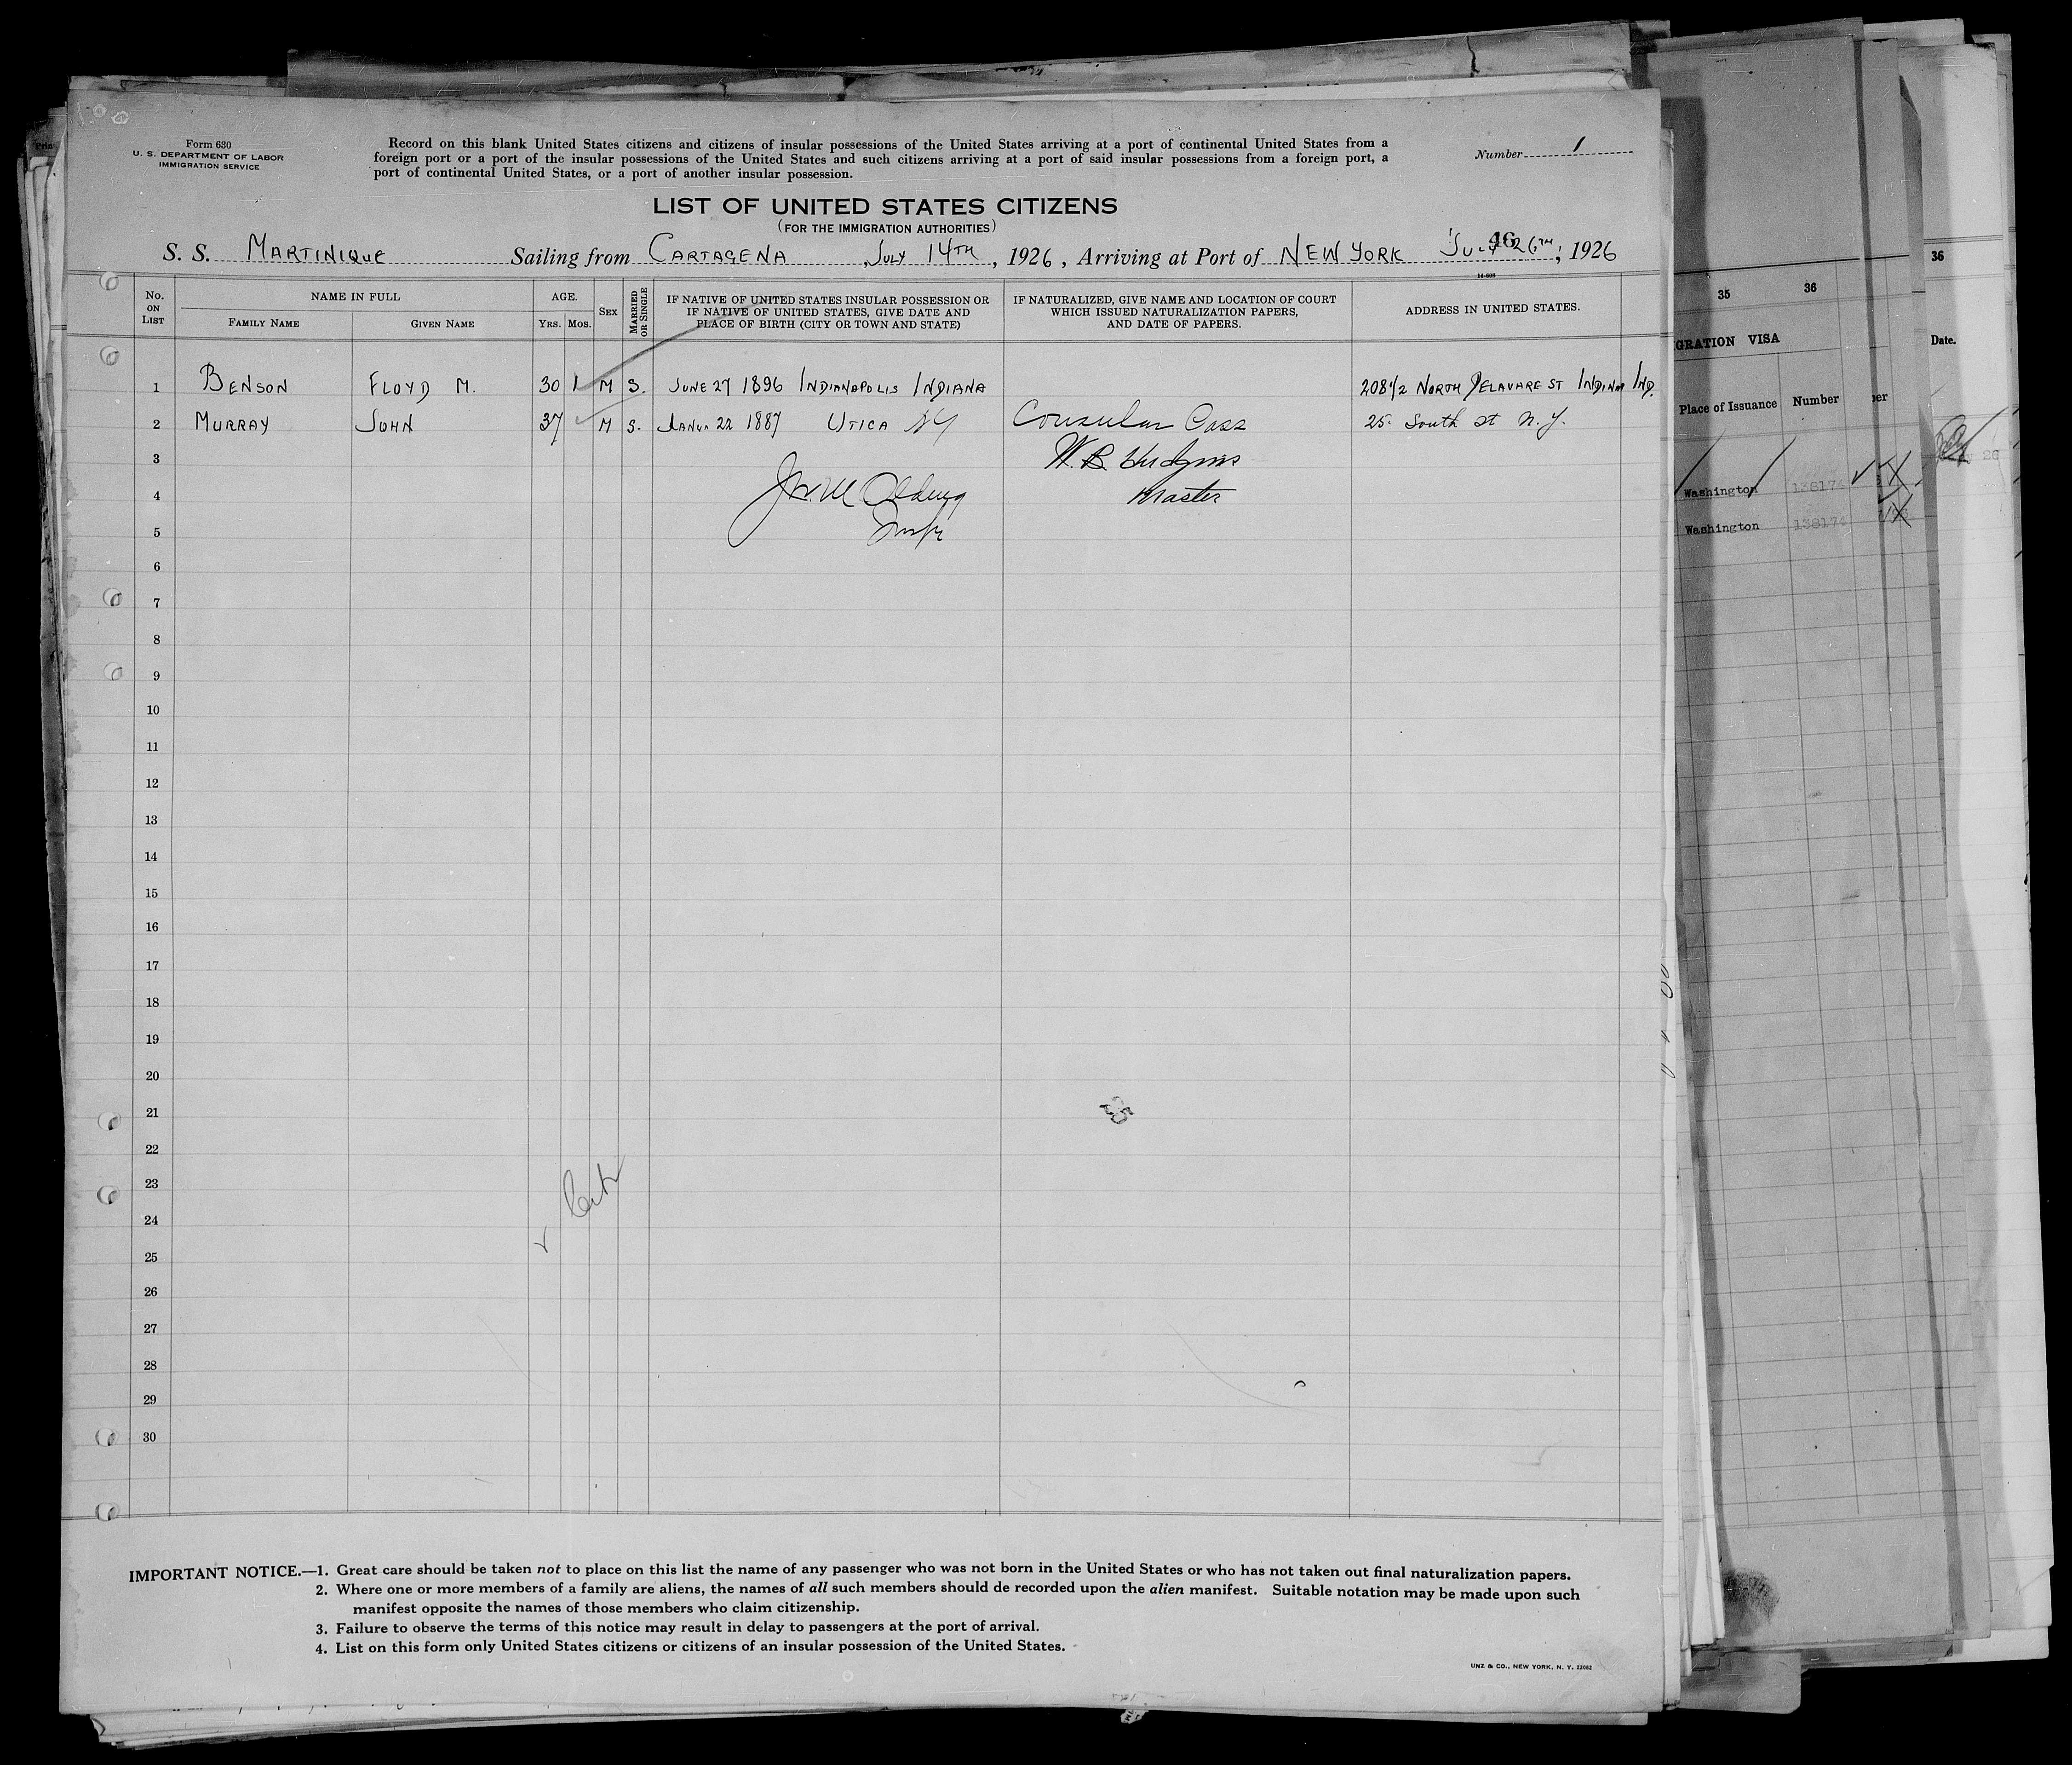 Form 630
U. S. DEPARTMENT OF LABOR
IMMIGRATION SERVICE
Record on this blank United States citizens and citizens of insular possessions of the United States arriving at a port of continental United States from a
foreign port or a port of the insular possessions of the United States and such citizens arriving at a port of said insular possessions from a foreign port, a
port of continental United States, or a port of another insular possession.
Number 1
LIST OF UNITED STATES CITIZENS
(FOR THE IMMIGRATION AUTHORITIES)
S. S. MARTINIQUE Sailing from CARTAGENA, JULY 14TH, 1926, Arriving at Port of NEW YORK JULY 26TH; 1926
46
14-608
No. ON LIST
NAME IN FULL
FAMILY NAME GIVEN NAME
AGE.
YRS. MOS.
SEX
MARRIED OR SINGLE
IF NATIVE OF UNITED STATES INSULAR POSSESSION OR
IF NATIVE OF UNITED STATES, GIVE DATE AND
PLACE OF BIRTH (CITY OR TOWN AND STATE)
IF NATURALIZED, GIVE NAME AND LOCATION OF COURT
WHICH ISSUED NATURALIZATION PAPERS,
AND DATE OF PAPERS.
ADDRESS IN UNITED STATES.
1 BENSON FLOYD M. 30 1 M S. JUNE 27 1896 INDIANAPOLIS INDIANA 208 1/2 NORTH DELAVARE ST INDINAP IND.
2 MURRAY JOHN 37 M S. JANUA 22 1887 UTICA NY Consular Pass 25 South St N.Y.
3 W. B. Hudgins
4 Master
5 Insp
6
7
8
9
10
11
12
13
14
15
16
17
18
19
20
21
22
23
24
25
26
27
28
29
30
25
IMPORTANT NOTICE.—1. Great care should be taken not to place on this list the name of any passenger who was not born in the United States or who has not taken out final naturalization papers.
2. Where one or more members of a family are aliens, the names of all such members should de recorded upon the alien manifest. Suitable notation may be made upon such
manifest opposite the names of those members who claim citizenship.
3. Failure to observe the terms of this notice may result in delay to passengers at the port of arrival.
4. List on this form only United States citizens or citizens of an insular possession of the United States.
UNZ & CO., NEW YORK, N. Y. 22082
35 36
GRATION VISA
Place of Issuance Number
Washington
Washington
36
Date.